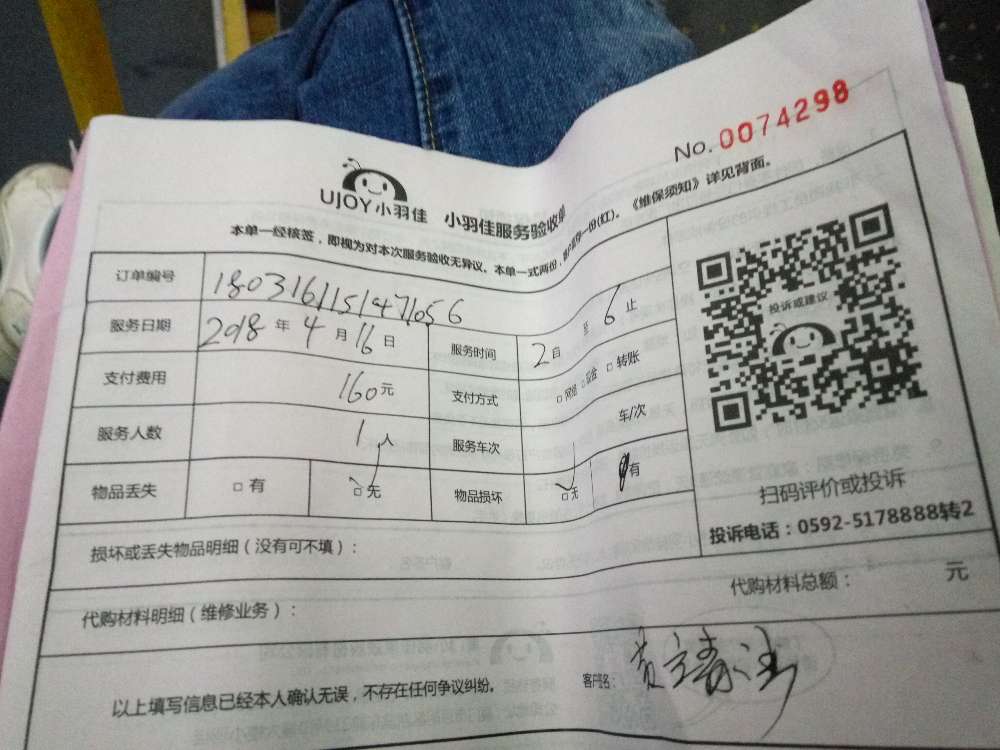 No. 0074298
UJOY小羽佳 小羽佳服务验收单
本单一经核签，即视为对本次服务验收无异议。本单一式两份，客户留存一份(红)。《维保须知》详见背面。
订单编号
服务日期 2018 年 4 月 16 日 服务时间 2 自 至 6 止
支付费用 160 元 支付方式 □ 现金 □ 转账
服务人数 1 人 服务车次 车/次
物品丢失 □ 有 □ 无 物品损坏 □ 无 有
投诉或建议
扫码评价或投诉
投诉电话：0592-5178888转2
损坏或丢失物品明细（没有可不填）：
代购材料明细（维修业务）： 代购材料总额： 元
以上填写信息已经本人确认无误，不存在任何争议纠纷。 客户签名：